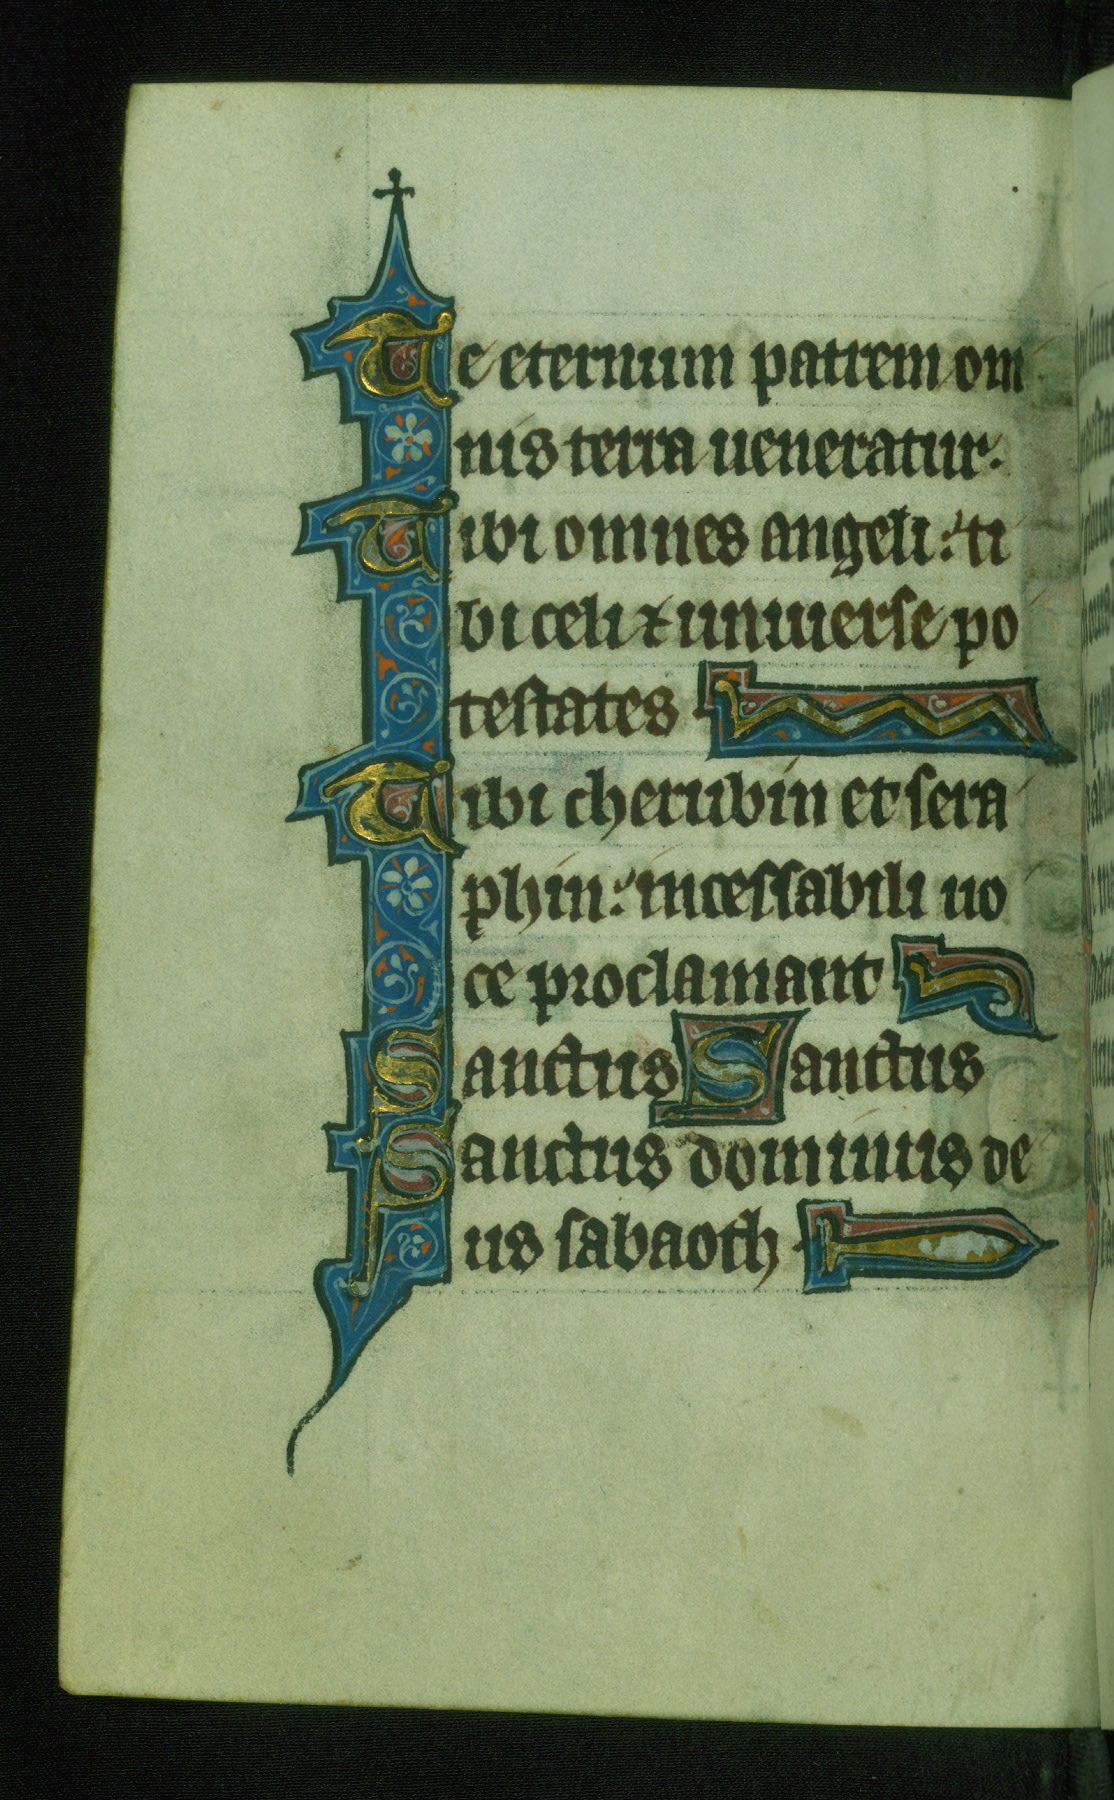 Te eternum patrem om
nis terra ueneratur.
Tibi omnes angeli: ti
bi celi ⁊ uniuerse po
testates
Tibi cherubin et sera
phin: incessabili uo
ce proclamant
Sanctus Sanctus
Sanctus dominus de
us sabaoth